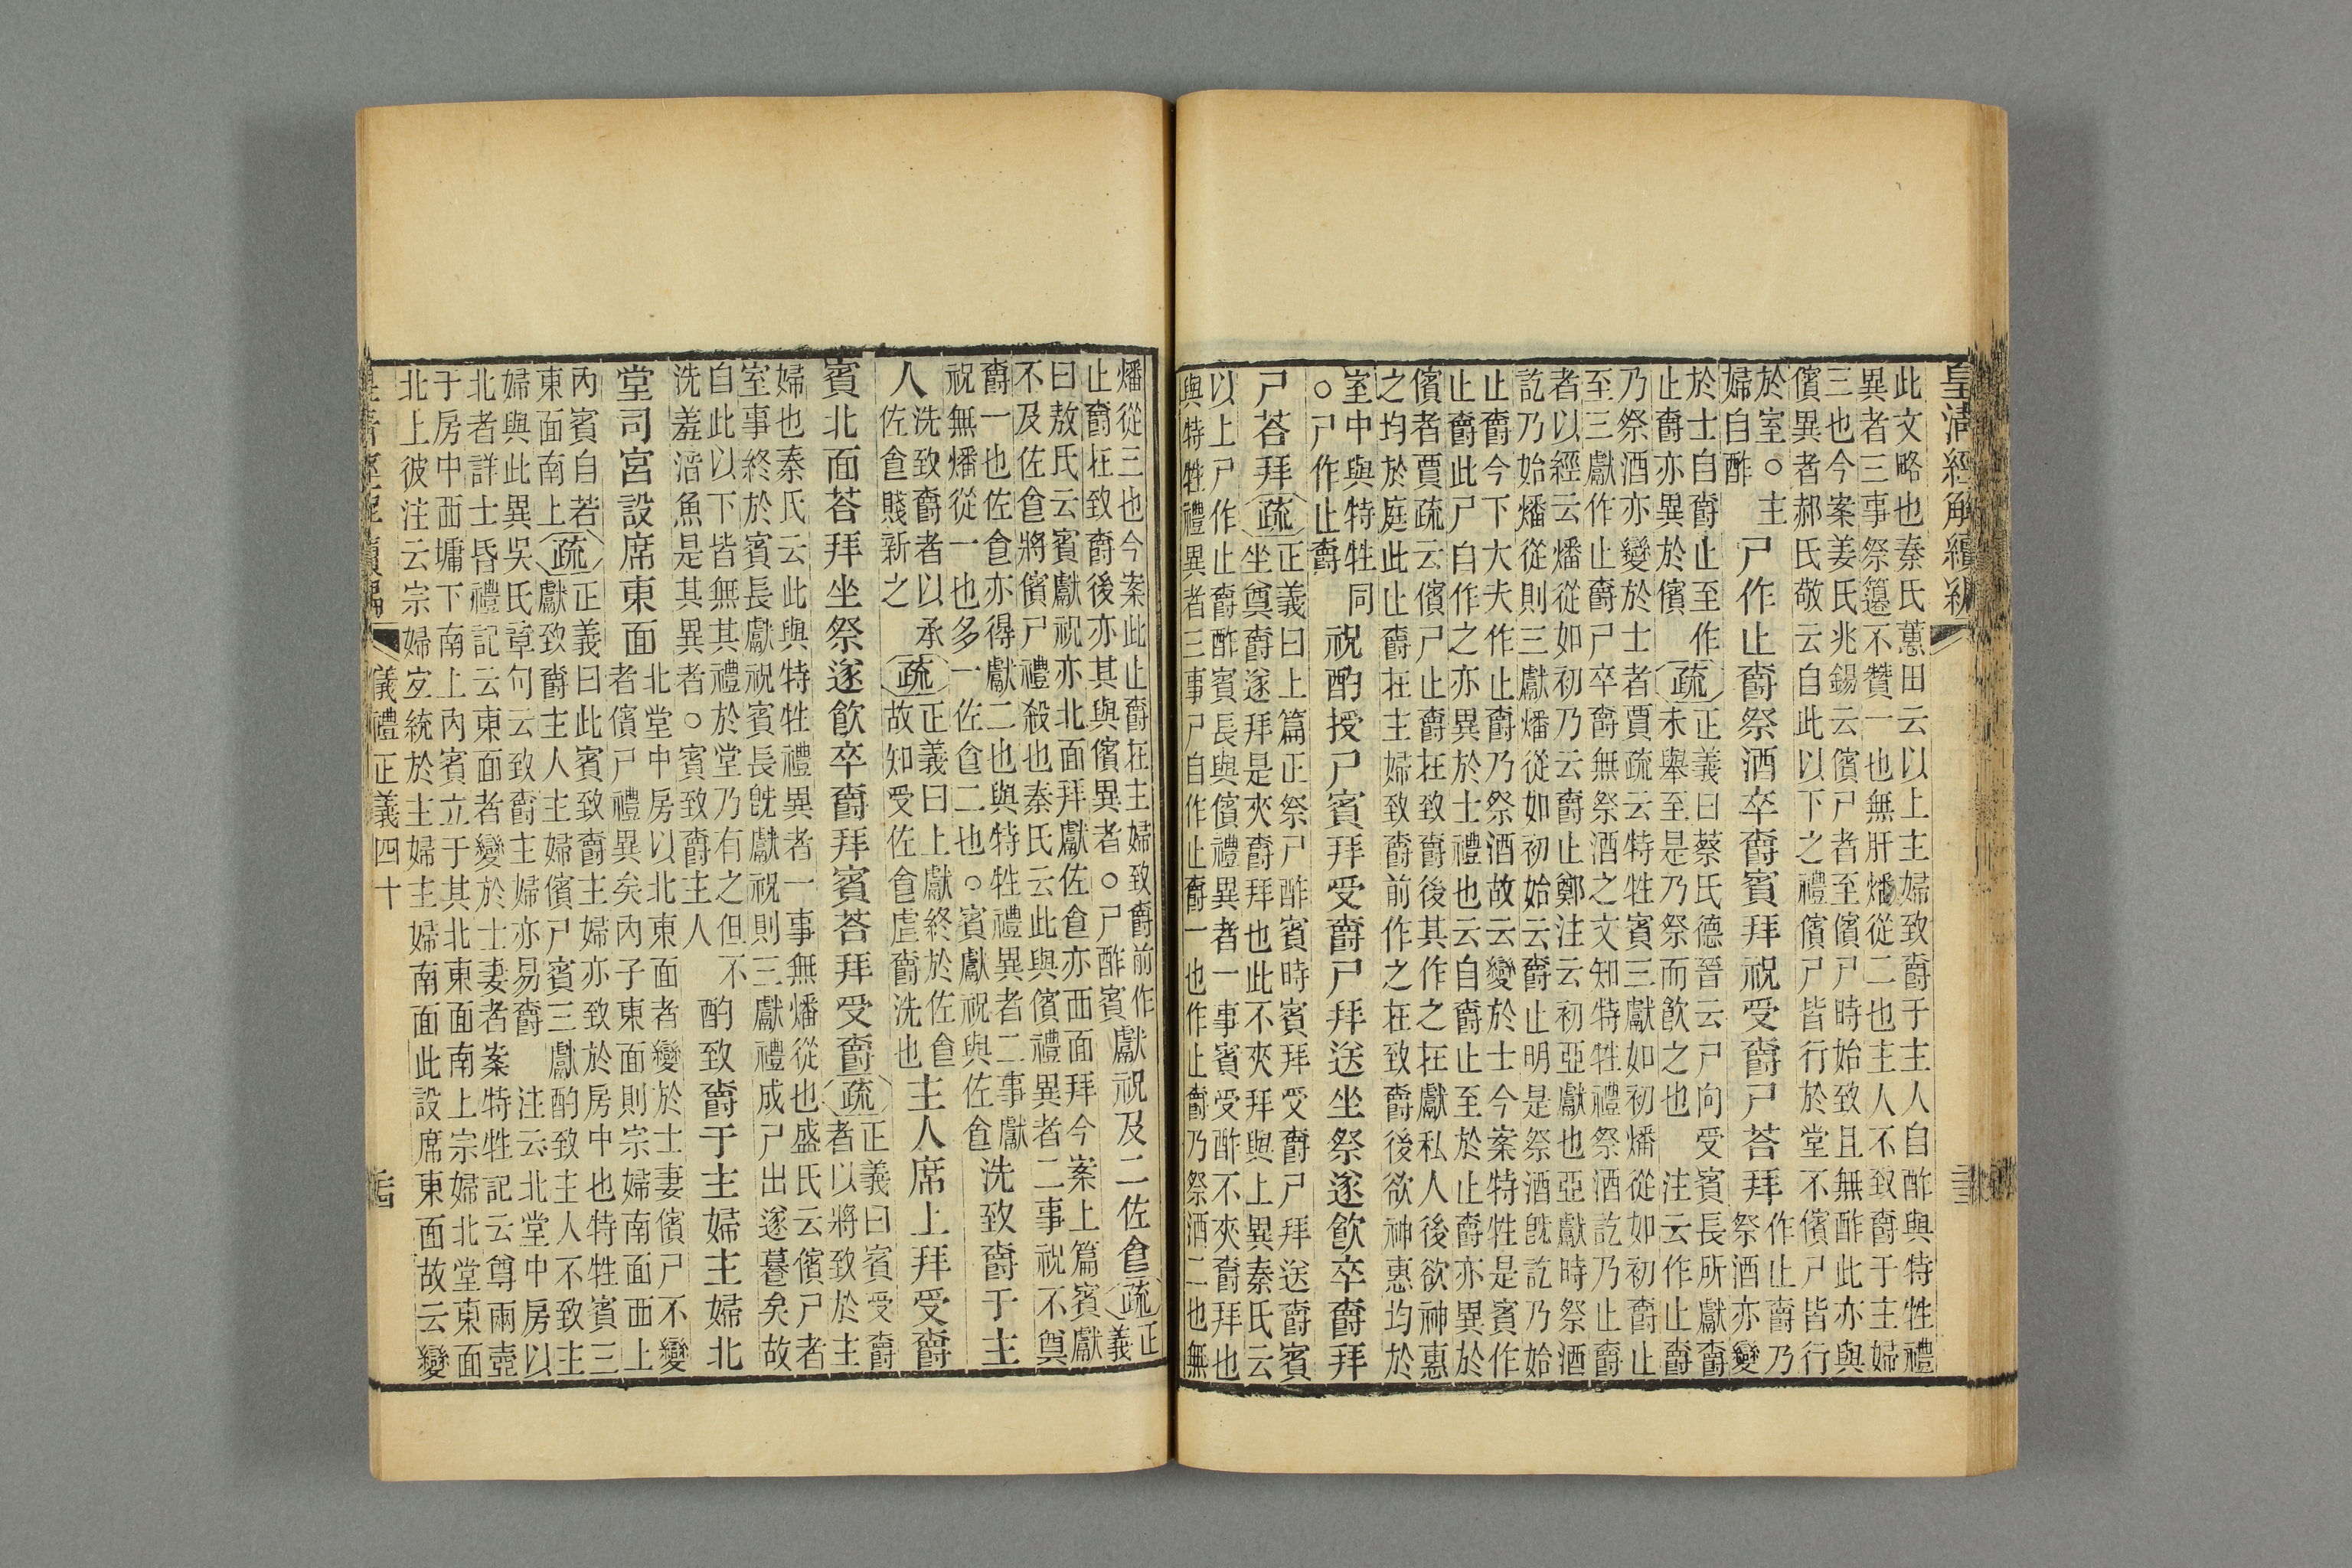 皇清經解續編
此文略也秦氏蕙田云以上主婦致爵于主人自酢與特牲禮
異者三事祭籩不贊一也無肝燔從二也主人不致爵于主婦
三也今案姜氏兆錫云儐尸者至儐尸時始致且無酢此亦與
儐異者郝氏敬云自此以下之禮儐尸皆行於堂不儐尸皆行
於室○主
婦自酢
尸作止爵祭酒卒爵賓拜祝受爵尸荅拜
作止爵乃
祭酒亦變
於士自爵止至作
止爵亦異於儐
疏
正義曰蔡氏德晉云尸向受賓長所獻爵
未舉至是乃祭而飲之也 注云作止爵
乃祭酒亦變於士者賈疏云特牲賓三獻如初燔從如初爵止
至三獻作止爵尸卒爵無祭酒之文知特牲禮祭酒訖乃止爵
者以經云燔從如初乃云爵止鄭注云初亞獻也亞獻時祭酒
訖乃始燔從則三獻燔從如初始云爵止明是祭酒旣訖乃始
止爵今下大夫作止爵乃祭酒故云變於士今案特牲是賓作
止爵此尸自作之亦異於士禮也云自爵止至於止爵亦異於
儐者賈疏云儐尸止爵在致爵後其作之在獻私人後欲神惠
之均於庭此止爵在主婦致爵前作之在致爵後欲神惠均於
室中與特牲同
○尸作止爵
祝酌授尸賓拜受爵尸拜送坐祭遂飲卒爵拜
尸荅拜
疏
正義曰上篇正祭尸酢賓時賓拜受爵尸拜送爵賓
坐奠爵遂拜是夾爵拜也此不夾拜與上異秦氏云
以上尸作止爵酢賓長與儐禮異者一事賓受酢不夾爵拜也
與特牲禮異者三事尸自作止爵一也作止爵乃祭酒二也無
燔從三也今案此止爵在主婦致爵前作
止爵在致爵後亦其與儐異者○尸酢賓
獻祝及二佐食
疏
正
義
曰敖氏云賓獻祝亦北面拜獻佐食亦西面拜今案上篇賓獻
不及佐食將儐尸禮殺也秦氏云此與儐禮異者二事祝不奠
爵一也佐食亦得獻二也與特牲禮異者二事獻
祝無燔從一也多一佐食二也○賓獻祝與佐食
洗致爵于主
人
洗致爵者以承
佐食賤新之
疏
正義曰上獻終於佐食
故知受佐食虛爵洗也
主人席上拜受爵
賓北面荅拜坐祭遂飲卒爵拜賓荅拜受爵
疏
正義曰賓受爵
者以將致於主
婦也秦氏云此與特牲禮異者一事無燔從也盛氏云儐尸者
室事終於賓長獻祝賓長旣獻祝則三獻禮成尸出遂暮矣故
自此以下皆無其禮於堂乃有之但不
洗羞湆魚是其異者○賓致爵主人
酌致爵于主婦主婦北
堂司宮設席東面
北堂中房以北東面者變於士妻儐尸不變
者儐尸禮異矣內子東面則宗婦南面西上
內賓自若
東面南上
疏
正義曰此賓致爵主婦亦致於房中也特牲賓三
獻致爵主人主婦儐尸賓三獻酌致主人不致主
婦與此異吳氏章句云致爵主婦亦易爵 注云北堂中房以
北者詳士昏禮記云東面者變於士妻者案特牲記云尊兩壺
于房中西墉下南上內賓立于其北東面南上宗婦北堂東面
北上彼注云宗婦宜統於主婦主婦南面此設席東面故云變
儀禮正義四十